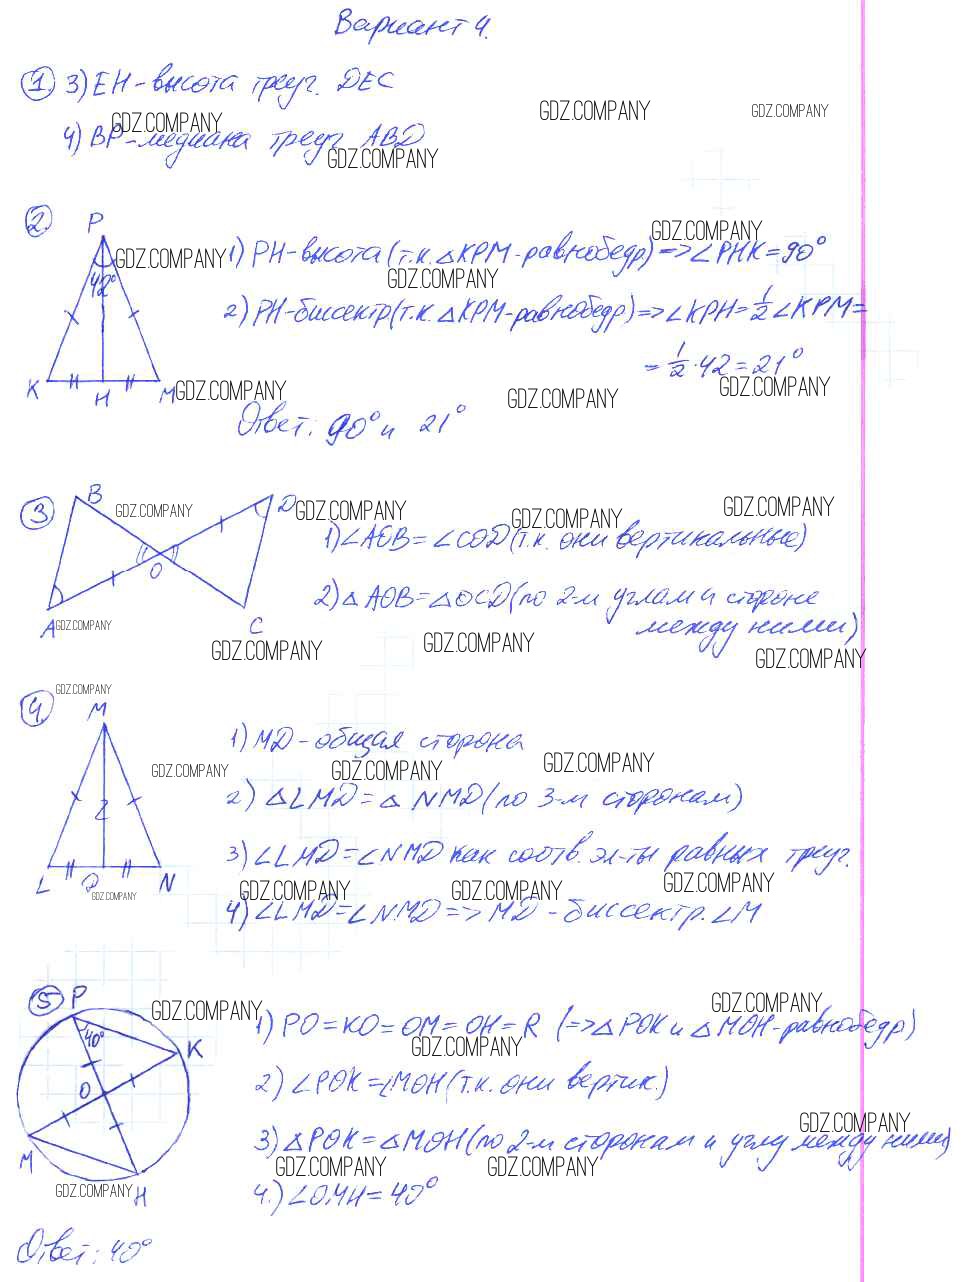 Вариант 4.
1. 3) EH - высота треуг. DEC
GDZ.COMPANY GDZ.COMPANY GDZ.COMPANY
4) BP - медиана треуг. ABD
GDZ.COMPANY
2.
P
GDZ.COMPANY
GDZ.COMPANY 1) PH - высота (т.к. △KPM - равнобедр) => ∠PHK = 90°
42° GDZ.COMPANY
2) PH - биссектр (т.к. △KPM - равнобедр) => ∠KPH = 1/2 ∠KPM =
= 1/2 · 42 = 21°
K H M GDZ.COMPANY GDZ.COMPANY GDZ.COMPANY
Ответ: 90° и 21°
3
B D
GDZ.COMPANY GDZ.COMPANY GDZ.COMPANY GDZ.COMPANY
1) ∠AOB = ∠COD (т.к. они вертикальные)
O
2) △AOB = △OCD (по 2-м углам и стороне
между ними)
A C
GDZ.COMPANY GDZ.COMPANY GDZ.COMPANY GDZ.COMPANY
4.
GDZ.COMPANY
M
1) MD - общая сторона
GDZ.COMPANY GDZ.COMPANY GDZ.COMPANY
2) △LMD = △NMD (по 3-м сторонам)
3) ∠LMD = ∠NMD как соотв. эл-ты равных треуг.
L D N
GDZ.COMPANY GDZ.COMPANY GDZ.COMPANY GDZ.COMPANY
4) ∠LMD = ∠NMD => MD - биссектр. ∠M
5 P
GDZ.COMPANY GDZ.COMPANY
1) PO = KO = OM = OH = R (=> △POK и △MOH - равнобедр)
40° K GDZ.COMPANY
2) ∠POK = ∠MOH (т.к. они вертик.)
O
GDZ.COMPANY
3) △POK = △MOH (по 2-м сторонам и углу между ними)
M GDZ.COMPANY GDZ.COMPANY
GDZ.COMPANY H
4.) ∠OMH = 40°
Ответ: 40°